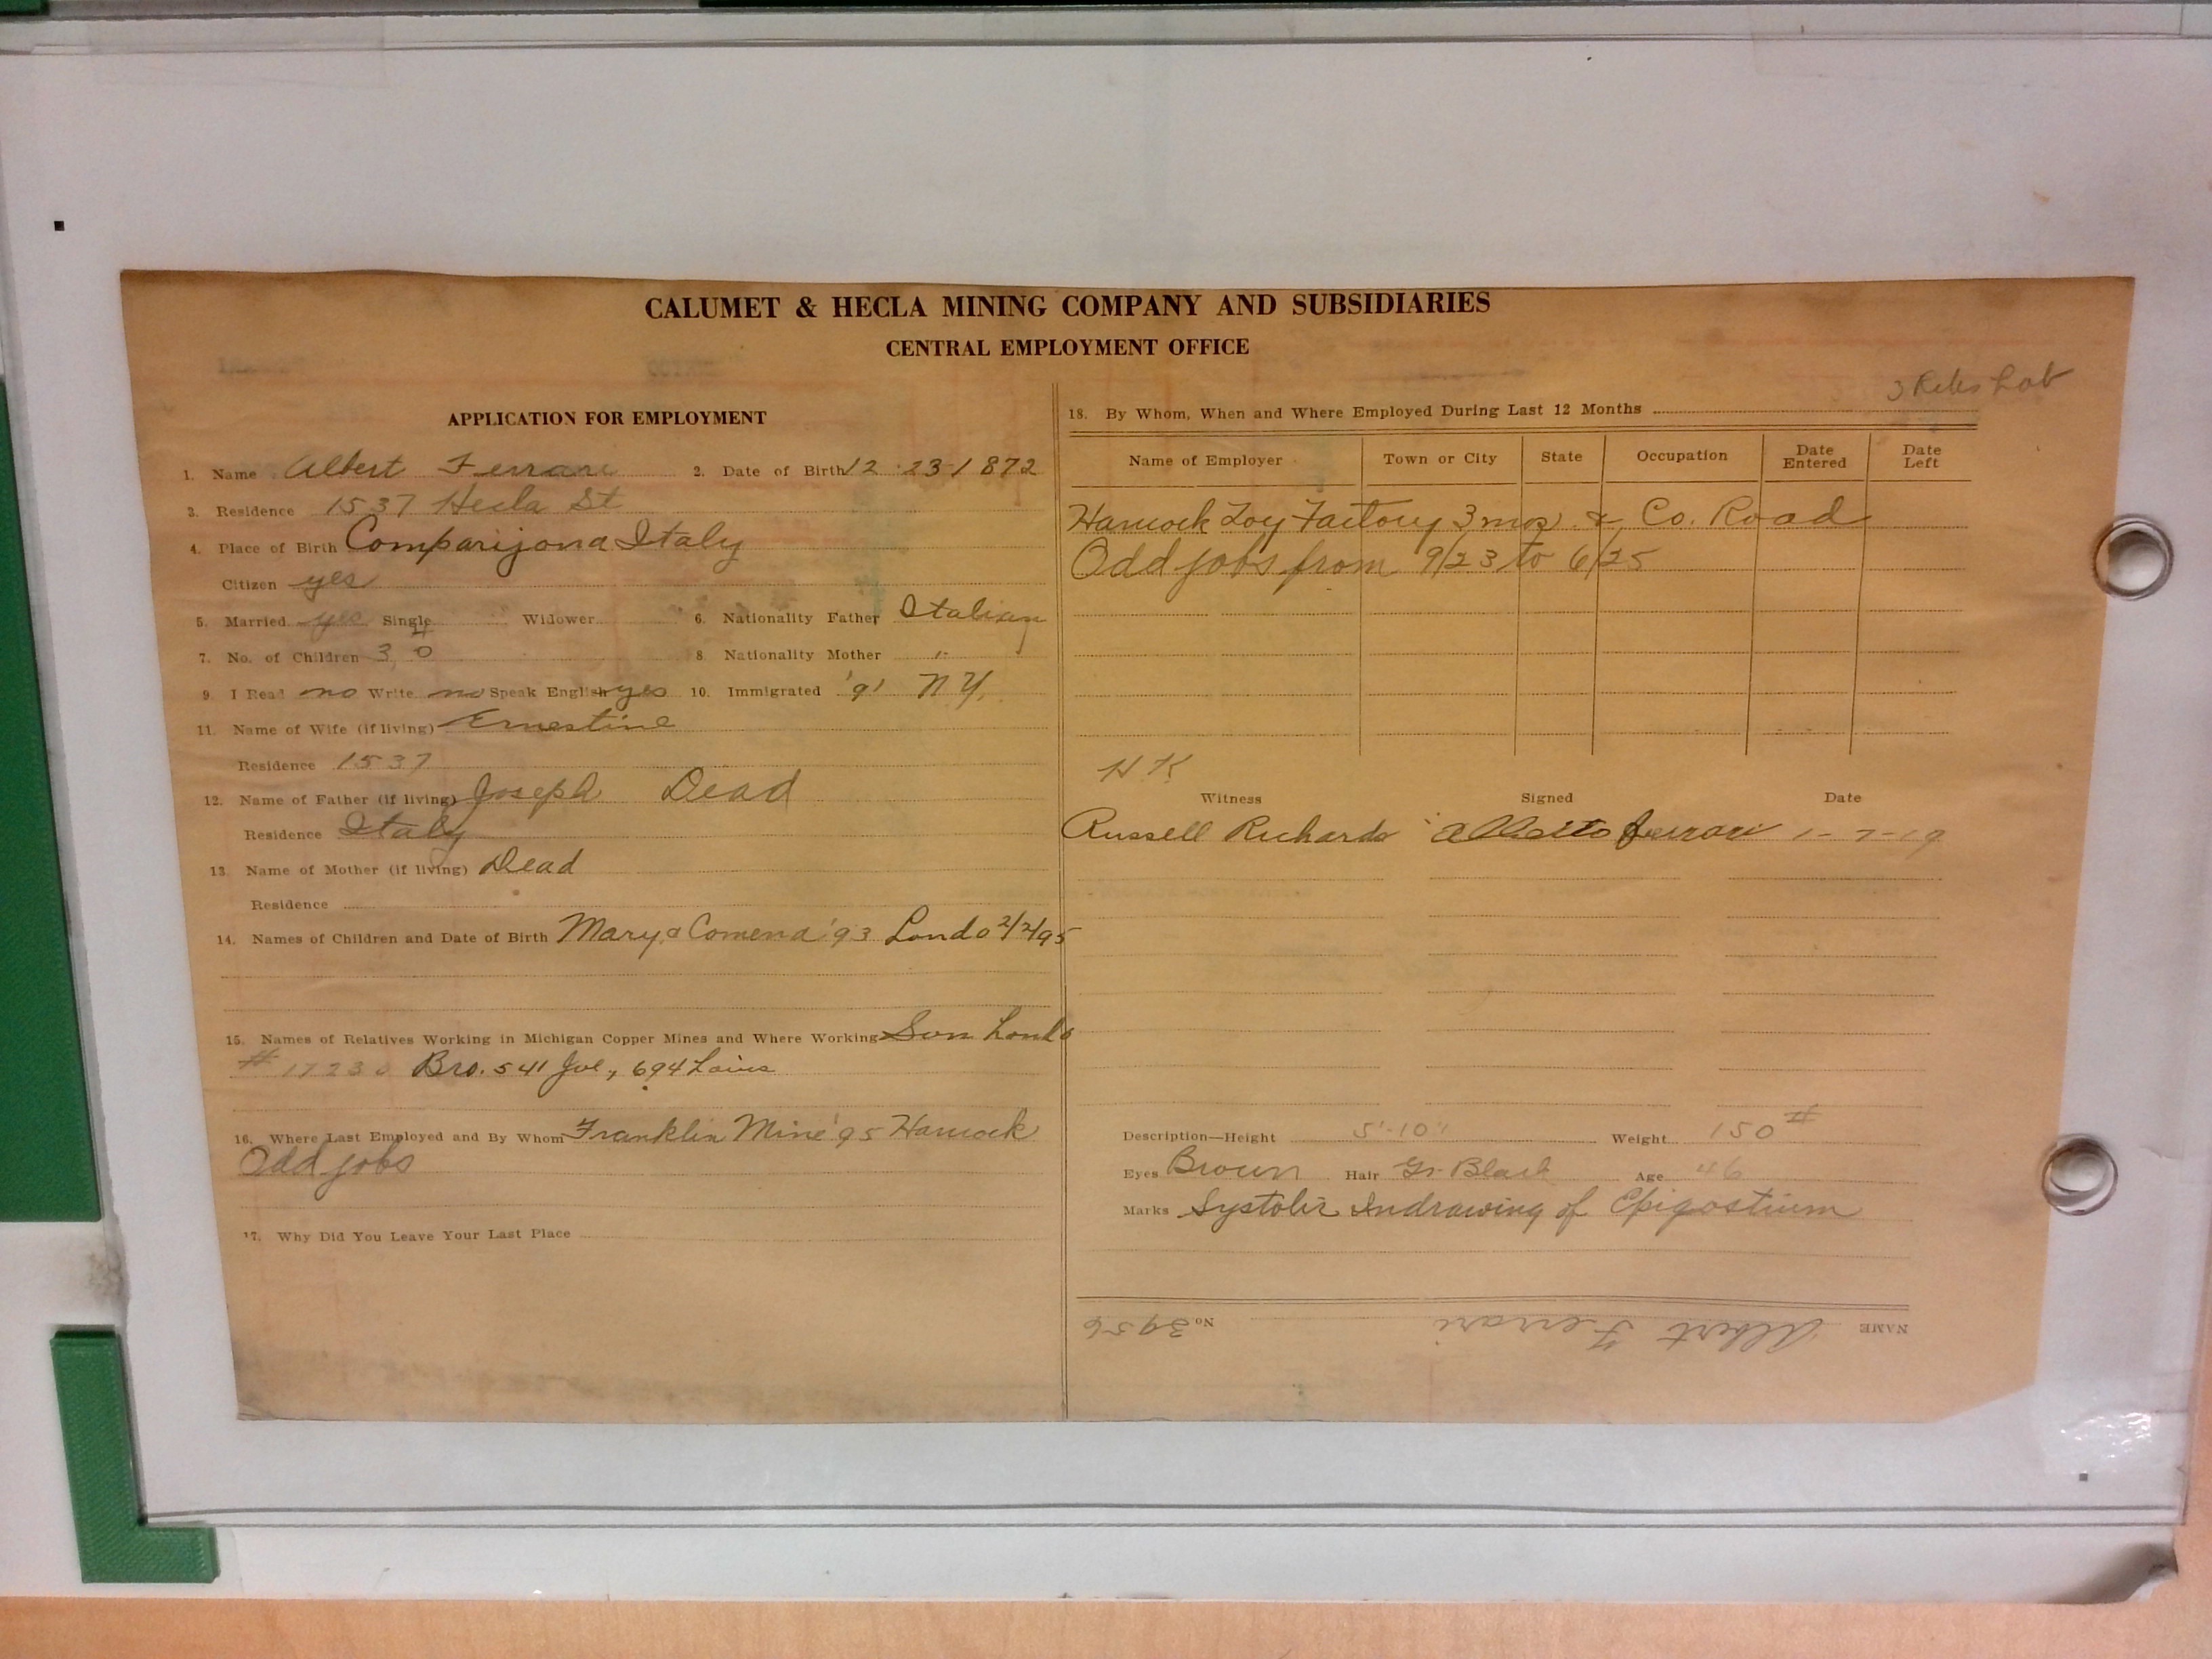 CALUMET & HECLA MINING COMPANY AND SUBSIDIARIES
CENTRAL EMPLOYMENT OFFICE
APPLICATION FOR EMPLOYMENT
1. Name Albert Ferrari 2. Date of Birth 12 23-1872
3. Residence 1537 Hecla St
4. Place of Birth Comparijona Italy
Citizen yes
5. Married yes Single Widower 6. Nationality Father Italian
7. No. of Children 3 0 8. Nationality Mother "
9. I Read no Write no Speak English yes 10. Immigrated '91 N.Y.
11. Name of Wife (if living) Ernestine
Residence 1537
12. Name of Father (if living) Joseph Dead
Residence Italy
13. Name of Mother (if living) Dead
Residence
14. Names of Children and Date of Birth Mary & Comena '93 Londo 2/2/95
15. Names of Relatives Working in Michigan Copper Mines and Where Working Son Londo
# 17230 Bro. 541 Jul, 694 Louis
16. Where Last Employed and By Whom Franklin Mine '95 Hancock
Odd jobs
17. Why Did You Leave Your Last Place
3 Lab
18. By Whom, When and Where Employed During Last 12 Months
Name of Employer Town or City State Occupation Date Entered Date Left
Hancock Toy Factory 3 mos & Co. Road
Odd jobs from 9/23 to 6/25
HK
Witness Signed Date
Russell Richards Alberto Ferrari 1-7-19
Description—Height 5'-10" Weight 150#
Eyes Brown Hair Gr. Black Age 46
Marks Systolic Indrawing of Epigostium
NAME Albert Ferrari No. 3956